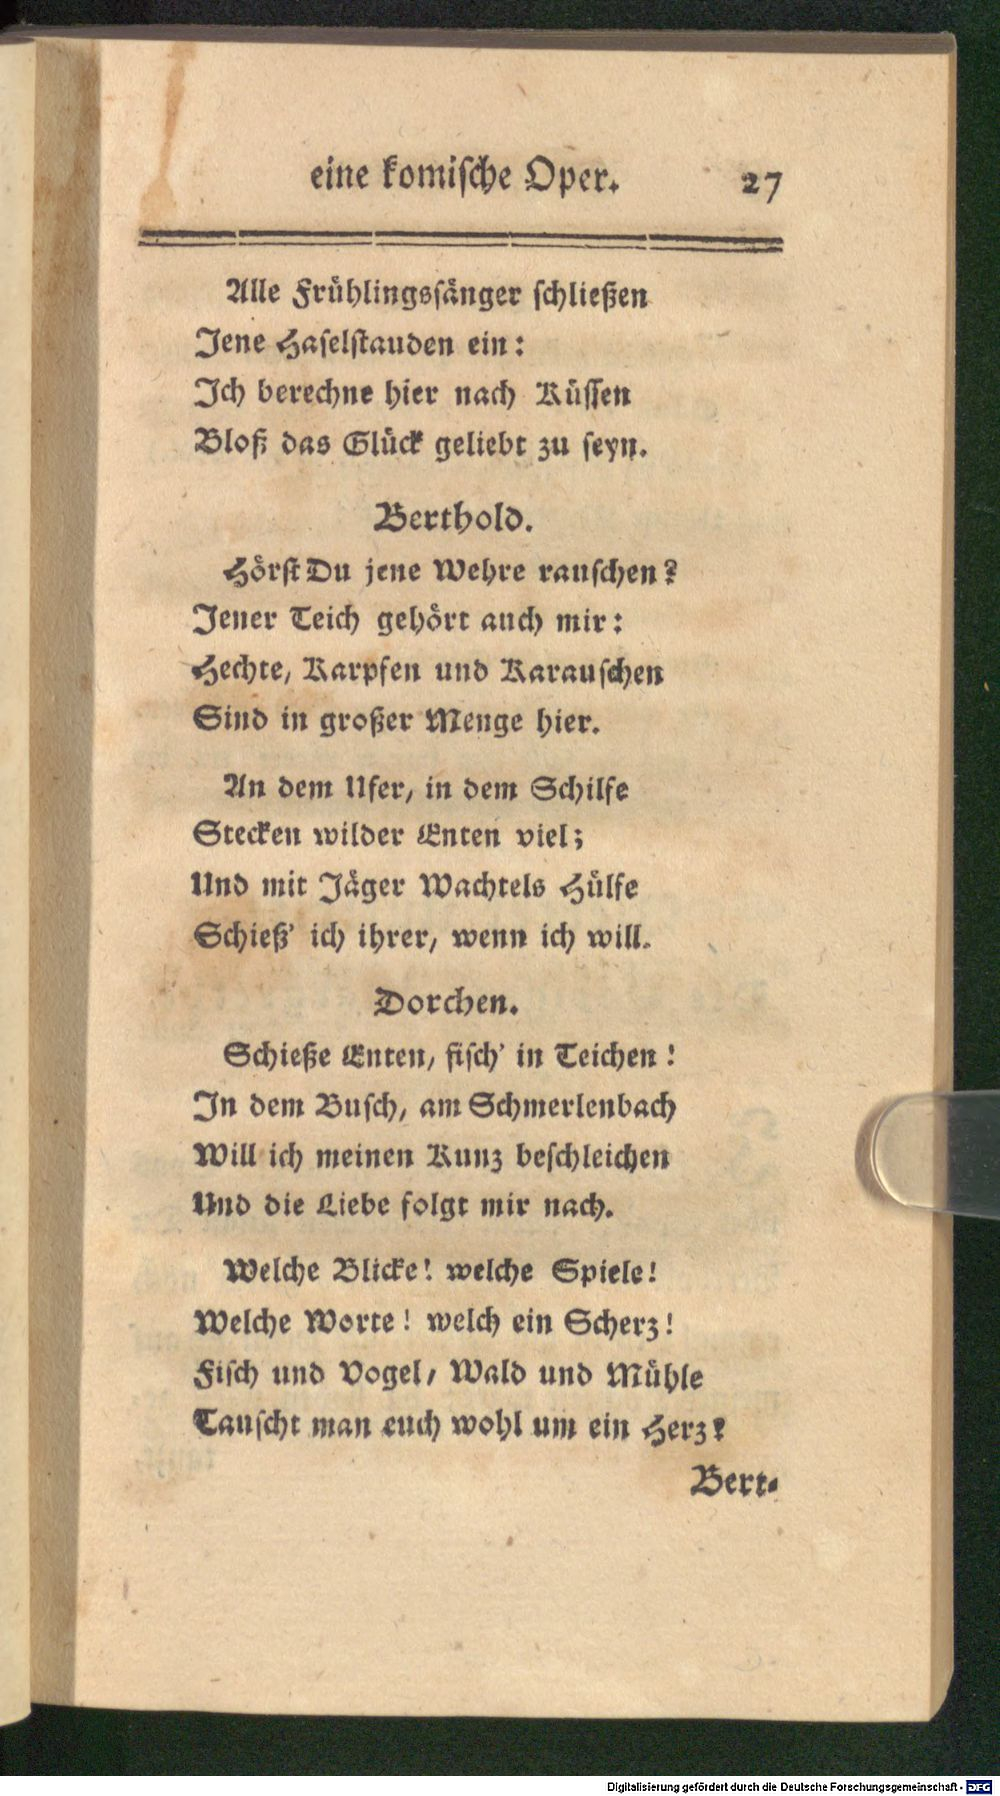 eine komiſche Oper. 27
Alle Frühlingsſänger ſchließen
Jene Haſelſtauden ein:
Ich berechne hier nach Küſſen
Bloß das Glück geliebt zu ſeyn.
Berthold.
Hörſt Du jene Wehre rauſchen?
Jener Teich gehört auch mir:
Hechte, Karpfen und Karauſchen
Sind in großer Menge hier.
An dem Ufer, in dem Schilfe
Stecken wilder Enten viel;
Und mit Jäger Wachtels Hülfe
Schieß' ich ihrer, wenn ich will.
Dorchen.
Schieße Enten, fiſch' in Teichen!
In dem Buſch, am Schmerlenbach
Will ich meinen Kunz beſchleichen
Und die Liebe folgt mir nach.
Welche Blicke! welche Spiele!
Welche Worte! welch ein Scherz!
Fiſch und Vogel, Wald und Mühle
Tauſcht man euch wohl um ein Herz?
Bert-
Digitalisierung gefördert durch die Deutsche Forschungsgemeinschaft - DFG